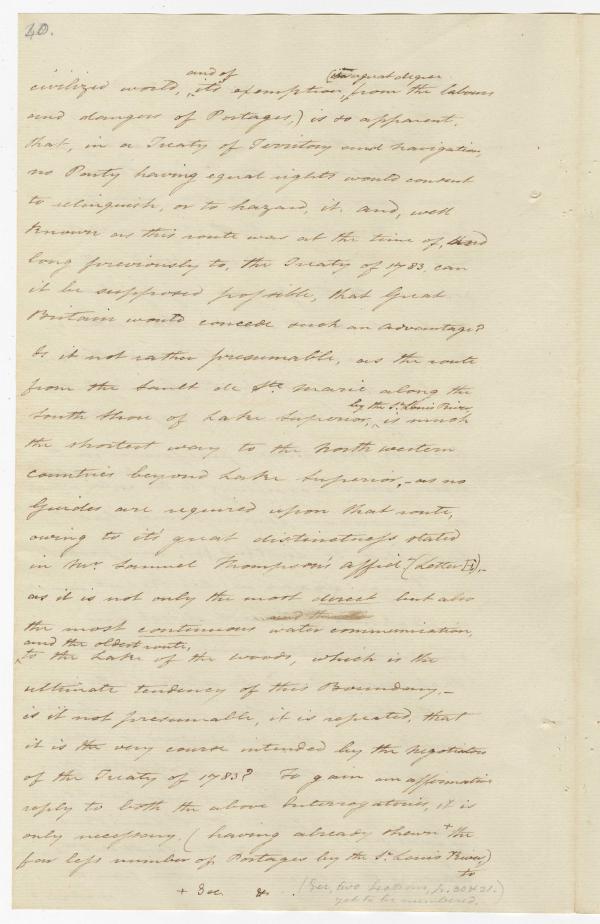 40.
and of (in a great degree
civilized world, ^its exemption, ^from the labours
and dangers of Portages,) is so apparent,
that, in a Treaty of Territory and navigation,
no Party having equal rights would consent
to relinquish, or to hazard, it. and, well
known as this route was at the time of, and
long previously to, the Treaty of 1783. can
it be supposed possible, that Great
Britain would concede such an advantage?
Is it not rather presumable, as the route
from the Sault de Ste. Marie along the
by the St. Louis River,
South Shore of Lake Superior, ^ is much
the shortest way to the North western
countries beyond Lake Superior,- as no
Guides are required upon that route,
owing to it's great distinctness stated
in Mr. Samuel Thompson's affidt. (Letter I),-
as it is not only the most direct but also
the most continuous water communication,
and the oldest route,
^to the Lake of the Woods, which is the
ultimate tendency of this Boundary,-
is it not presumable, it is repeated, that
it is the very course intended by the Negotiators
of the Treaty of 1783? To gain an affirmative
reply to both the above Interrogatories, it is
only necessary (having already shewn + the
far less number of Portages by the St. Louis River,)
to
+ See
(See, two Sections, 20 & 21.)
yet to be numbered.